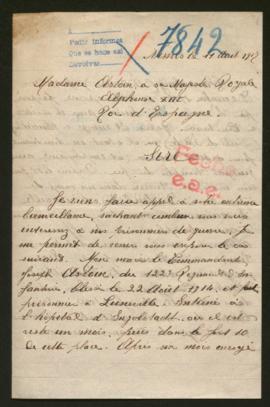 Pedir informes
Que se haga así
Devolver
7842
Nimes le 21 Août 191
Madame Astoin, à sa Majesté Royale
Alphonse XIII
Roi d'Espagne.
Sire
Fecha
e.a.c.
Je viens faire appel à votre extrême
bienveillance, sachant combien vous vous
intéressez à nos prisonniers de guerre. Je
me permet de venir vous exposer le cas
suivant. Mon mari le Commandant
Joseph Astoin, du 122e Régiment d'In
fanterie, blessé le 22 Août 1914, et fait
prisonnier à Luneville. Interné à
l'hôpital d'Ingolstadt, où il est
resté un mois, puis dans le fort 10
de cette place. Après un mois envoyé